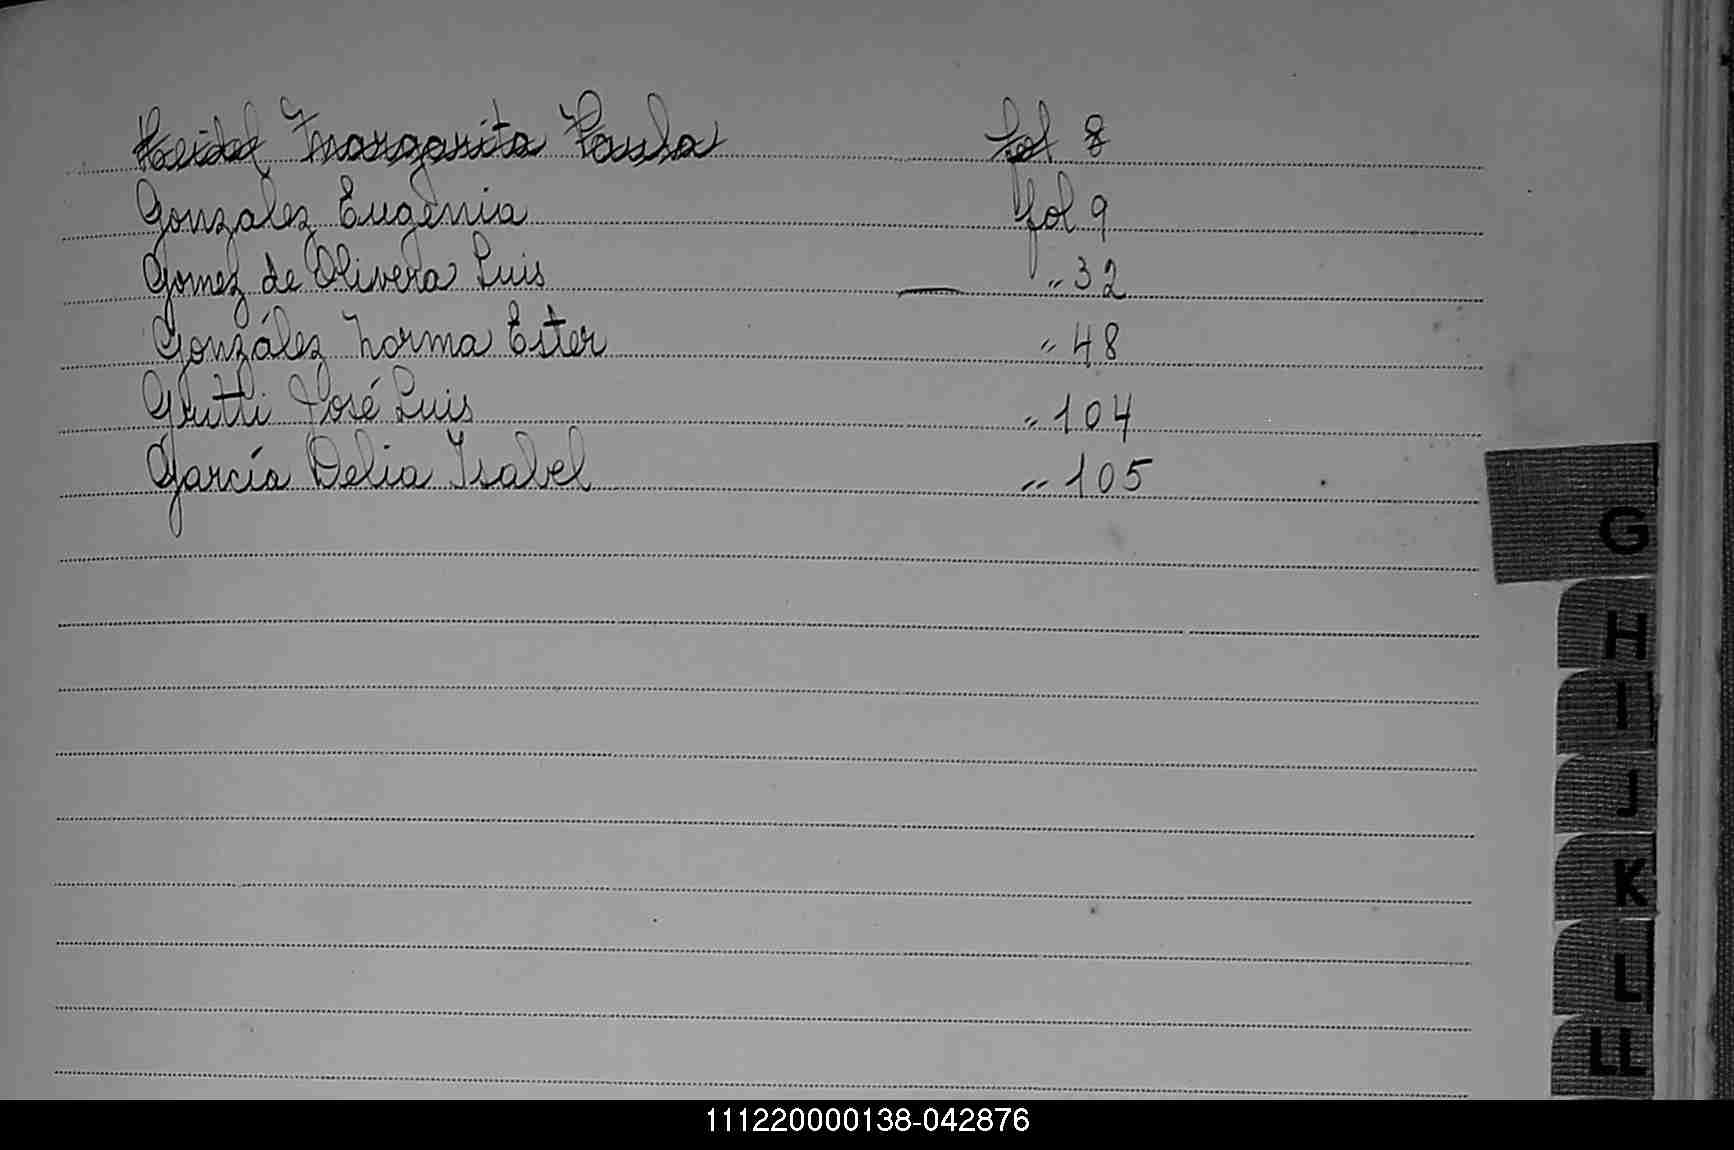 Margarita Paula fol 8
Gonzalez Eugenia fol 9
Gomez de Olivera Luis — " 32
González Norma Ester " 48
Grutli José Luis " 104
García Delia Isabel " 105
G
H
I
J
K
L
LL
111220000138-042876